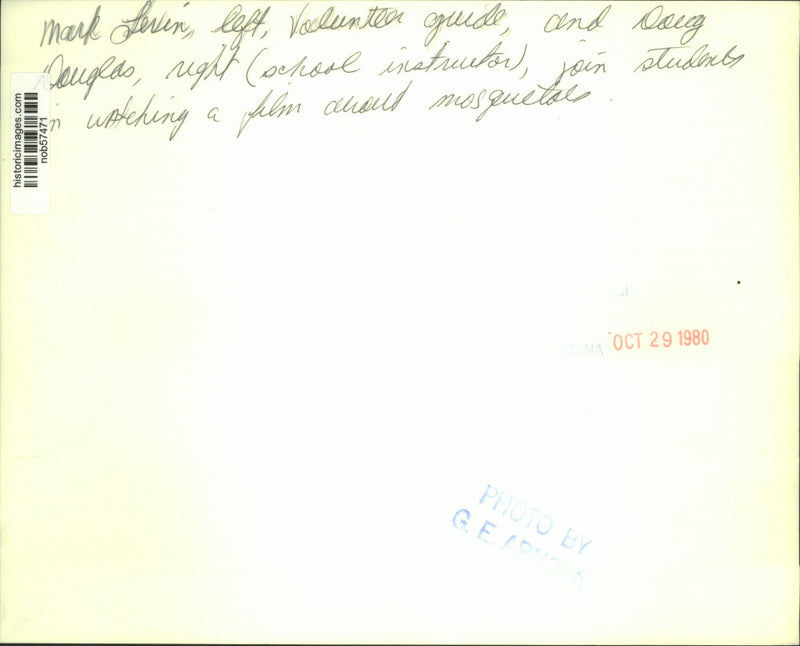 Mark Levin, left, Volunteer guide, and Doug
Douglas, right (school instructor), join students
in watching a film about mosquetoes.
historicimages.com
nob57471
OCT 29 1980
PHOTO BY
G. E. ARNOLD